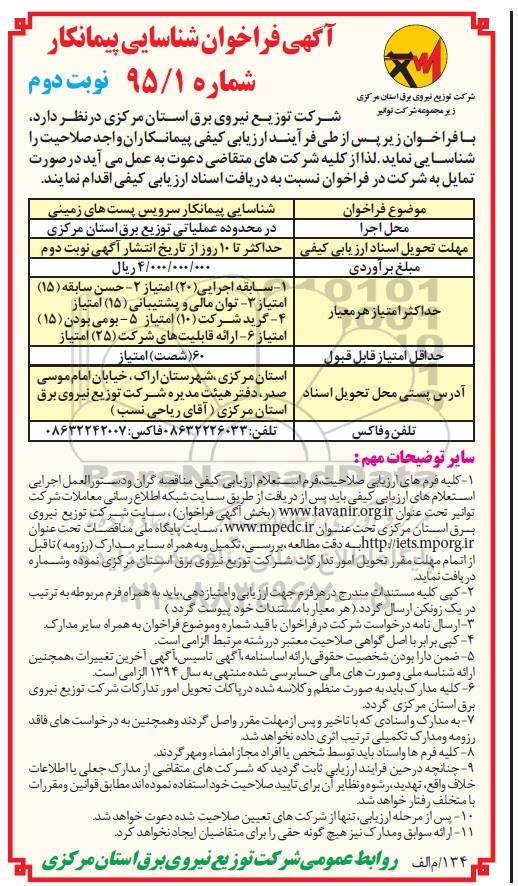 آگهی فراخوان شناسایی پیمانکار
شماره ۹۵/۱ نوبت دوم
شرکت توزیع نیروی برق استان مرکزی
زیر مجموعه شرکت توانیر
شرکت توزیع نیروی برق استان مرکزی در نظر دارد،
با فراخوان زیر پس از طی فرآیند ارزیابی کیفی پیمانکاران واجد صلاحیت را
شناسایی نماید. لذا از کلیه شرکت های متقاضی دعوت به عمل می آید در صورت
تمایل به شرکت در فراخوان نسبت به دریافت اسناد ارزیابی کیفی اقدام نمایند.
موضوع فراخوان شناسایی پیمانکار سرویس پست های زمینی
محل اجرا در محدوده عملیاتی توزیع برق استان مرکزی
مهلت تحویل اسناد ارزیابی کیفی حداکثر تا ۱۰ روز از تاریخ انتشار آگهی نوبت دوم
مبلغ برآوردی ۴/۰۰۰/۰۰۰/۰۰۰ ریال
حداکثر امتیاز هر معیار
۱- سابقه اجرایی (۲۰) امتیاز ۲- حسن سابقه (۱۵)
امتیاز ۳- توان مالی و پشتیبانی (۱۵) امتیاز
۴- گرید شرکت (۱۰) امتیاز ۵- بومی بودن (۱۵)
امتیاز ۶- ارائه قابلیت های شرکت (۲۵) امتیاز
حداقل امتیاز قابل قبول ۶۰ (شصت) امتیاز
آدرس پستی محل تحویل اسناد
استان مرکزی، شهرستان اراک، خیابان امام موسی
صدر، دفتر هیئت مدیره شرکت توزیع نیروی برق
استان مرکزی ( آقای ریاحی نسب )
تلفن و فاکس تلفن: ۰۸۶۳۲۲۲۶۰۳۳ فاکس: ۰۸۶۳۲۲۴۲۰۰۷
سایر توضیحات مهم :
۱- کلیه فرم های ارزیابی صلاحیت، فرم استعلام ارزیابی کیفی مناقصه گران و دستورالعمل اجرایی
استعلام های ارزیابی کیفی باید پس از دریافت از طریق سایت شبکه اطلاع رسانی معاملات شرکت
توانیر تحت عنوان www.tavanir.org.ir (بخش آگهی فراخوان) ، سایت شرکت توزیع نیروی
برق استان مرکزی تحت عنوان www.mpedc.ir، سایت پایگاه ملی مناقصات تحت عنوان
http://iets.mporg.ir به دقت مطالعه، بررسی، تکمیل و به همراه سایر مدارک (رزومه) تا قبل
از اتمام مهلت مقرر تحویل امور تدارکات شرکت توزیع نیروی برق استان مرکزی نموده و شماره
دریافت نماید.
۲- کپی کلیه مستندات مندرج در هر فرم جهت ارزیابی و امتیازدهی، باید به همراه فرم مربوطه به ترتیب
در یک زونکن ارسال گردد. ( هر معیار با مستندات خود پیوست گردد )
۳- ارسال نامه درخواست شرکت در فراخوان با قید شماره و موضوع فراخوان به همراه سایر مدارک.
۴- کپی برابر با اصل گواهی صلاحیت معتبر در رشته مرتبط الزامی است.
۵- ضمن دارا بودن شخصیت حقوقی، ارائه اساسنامه، آگهی تاسیس، آگهی آخرین تغییرات ، همچنین
ارائه شناسه ملی و صورت های مالی حسابرسی شده منتهی به سال ۱۳۹۴ الزامی است.
۶- کلیه مدارک باید به صورت منظم و کلاسه شده در پاکات تحویل امور تدارکات شرکت توزیع نیروی
برق استان مرکزی گردد.
۷- به مدارک و اسنادی که با تاخیر و پس از مهلت مقرر واصل گردند و همچنین به درخواست های فاقد
رزومه و مدارک تکمیلی ترتیب اثری داده نخواهد شد.
۸- کلیه فرم ها و اسناد باید توسط شخص یا افراد مجاز امضاء و مهر گردند.
۹- چنانچه در حین فرایند ارزیابی ثابت گردید که شرکت های متقاضی از مدارک جعلی یا اطلاعات
خلاف واقع، تهدید، رشوه و نظایر آن برای تایید صلاحیت خود استفاده نموده اند مطابق قوانین و مقررات
با متخلف رفتار خواهد شد.
۱۰- پس از مرحله ارزیابی، تنها از شرکت های تعیین صلاحیت شده دعوت خواهد شد.
۱۱- ارائه سوابق و مدارک نیز هیچ گونه حقی را برای متقاضیان ایجاد نخواهد کرد.
۱۳۴/م الف روابط عمومی شرکت توزیع نیروی برق استان مرکزی